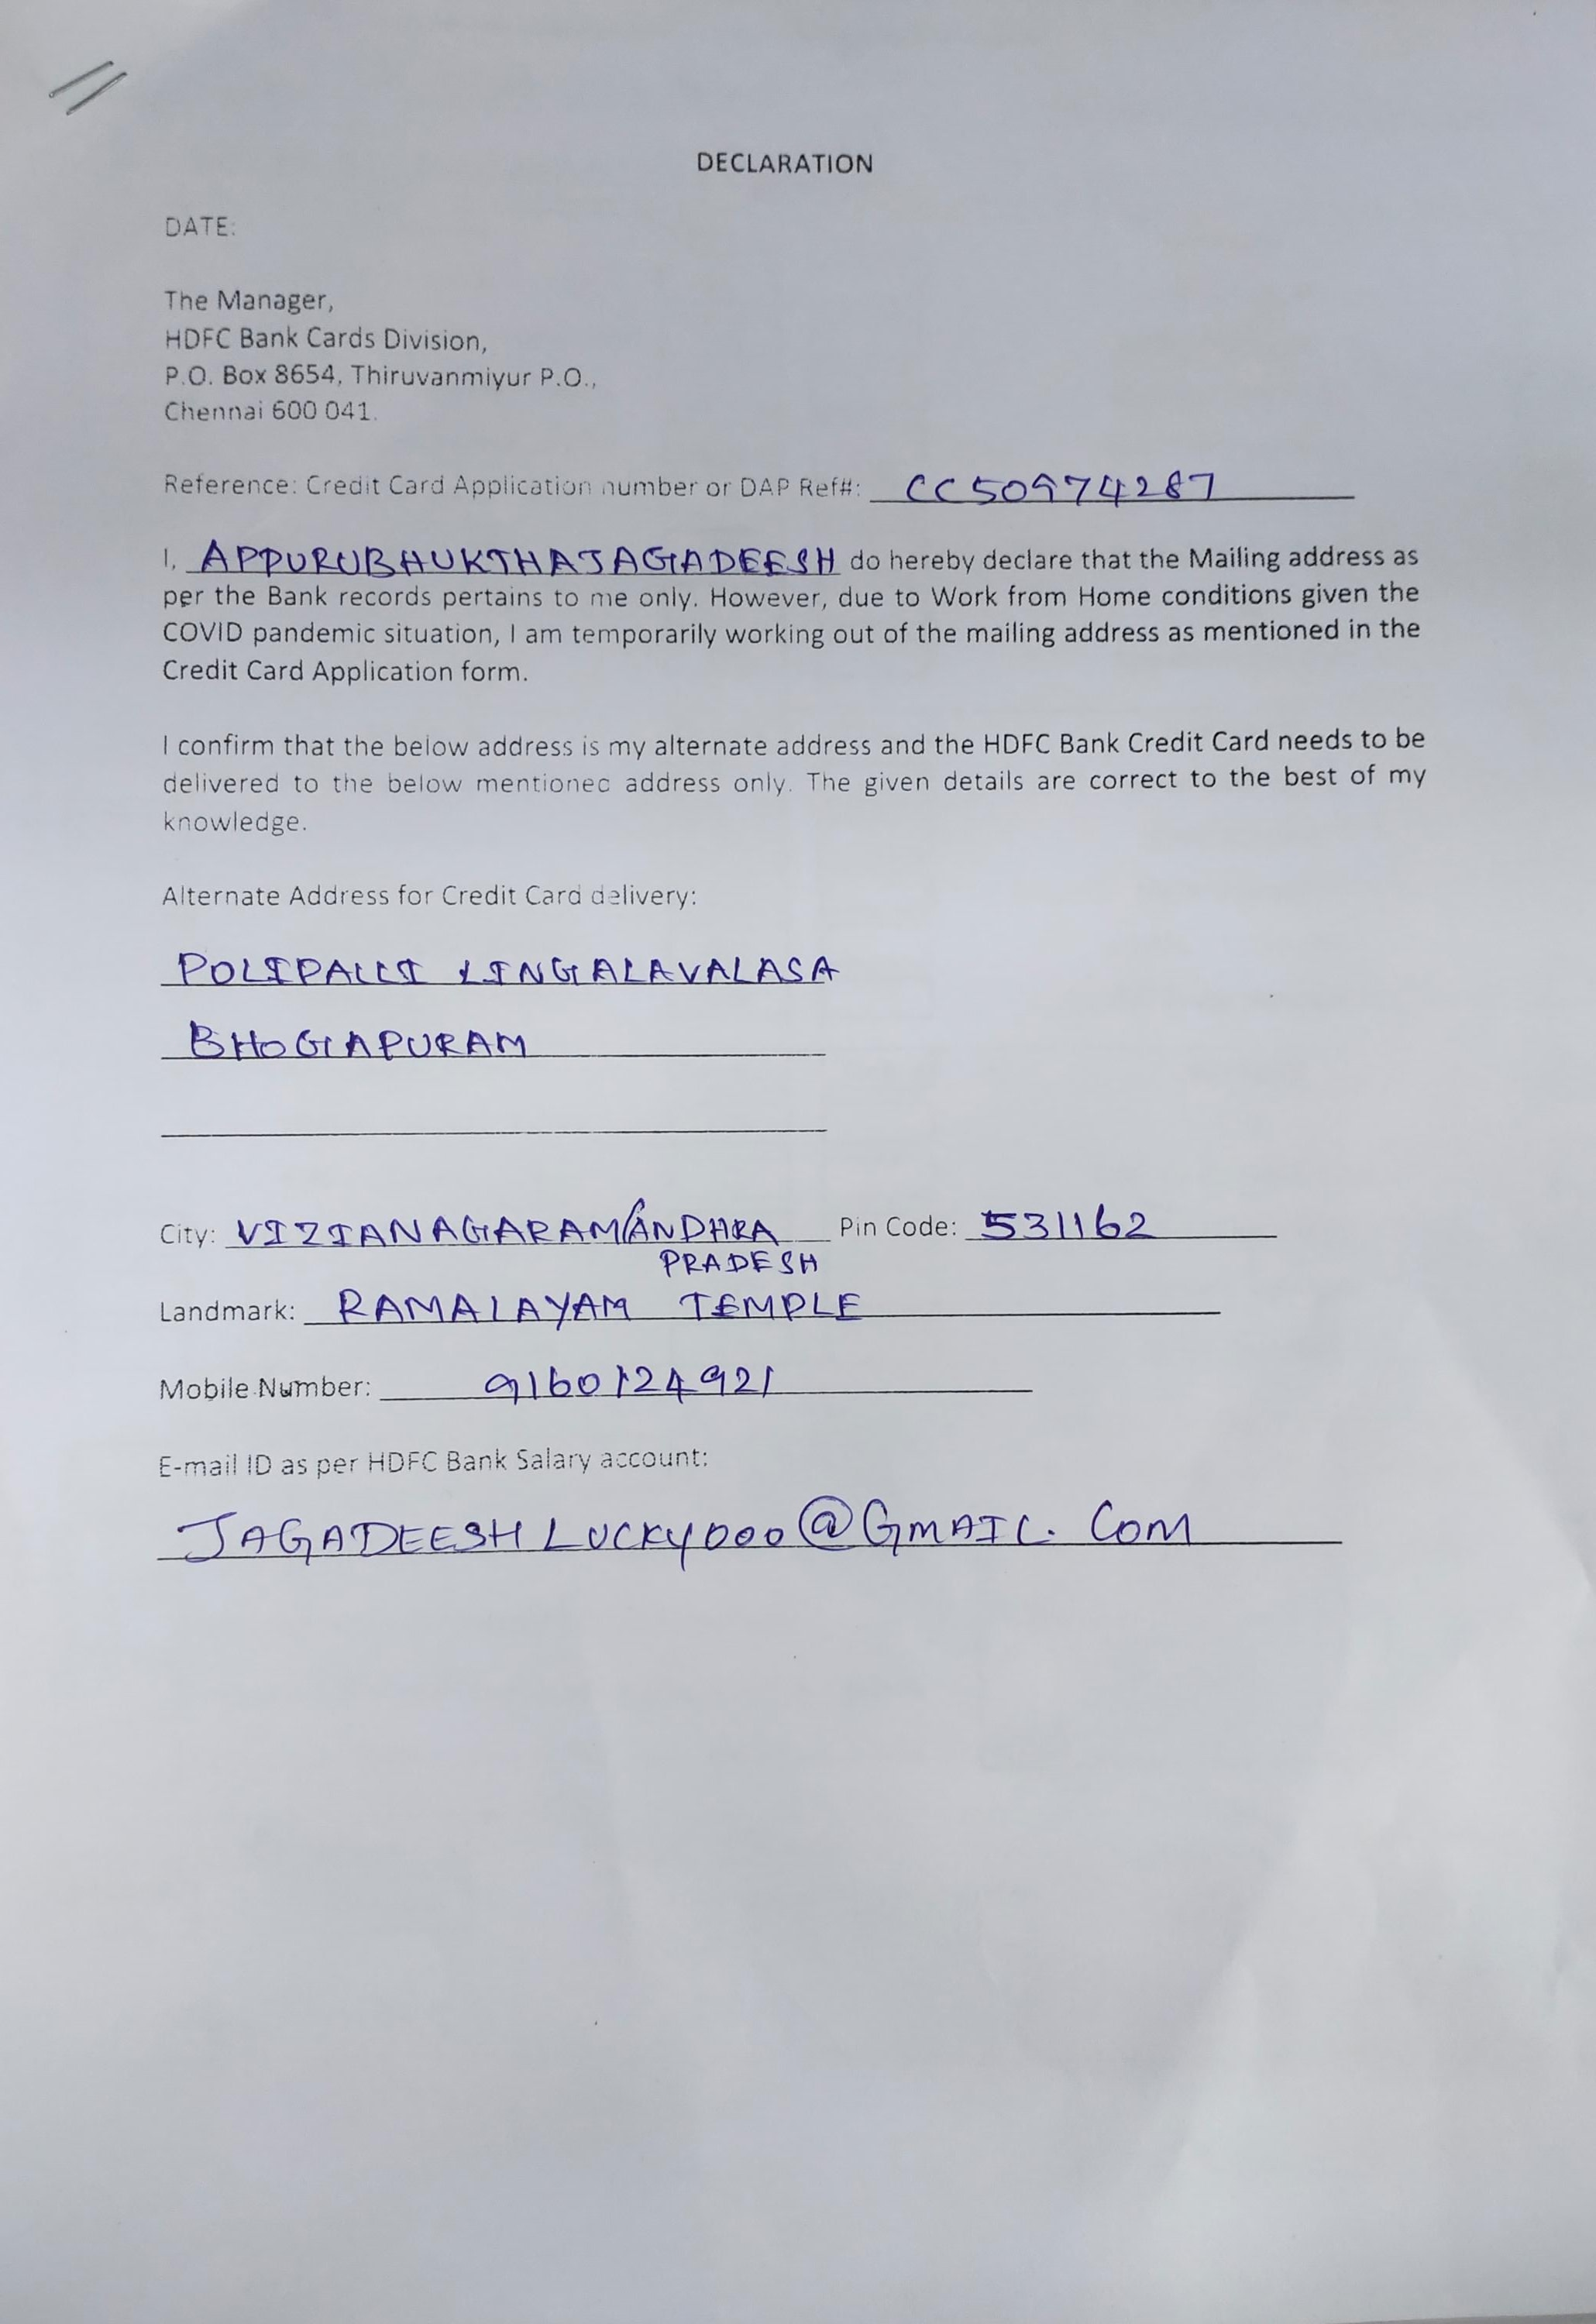 DECLARATION
DATE:
The Manager,
HDFC Bank Cards Division,
P.O. Box 8654, Thiruvanmiyur P.O.,
Chennai 600 041.
Reference: Credit Card Application number or DAP Ref#: CC50974287
I, APPURUBHUKTHAJAGADEESH do hereby declare that the Mailing address as
per the Bank records pertains to me only. However, due to Work from Home conditions given the
COVID pandemic situation, I am temporarily working out of the mailing address as mentioned in the
Credit Card Application form.
I confirm that the below address is my alternate address and the HDFC Bank Credit Card needs to be
delivered to the below mentioned address only. The given details are correct to the best of my
knowledge.
Alternate Address for Credit Card delivery:
POLIPALLI LINGALAVALASA
BHOGAPURAM
City: VIZIANAGARAM/ANDHRA Pin Code: 531162
PRADESH
Landmark: RAMALAYAM TEMPLE
Mobile Number: 9160124921
E-mail ID as per HDFC Bank Salary account:
JAGADEESHLUCKY000@GMAIL.COM